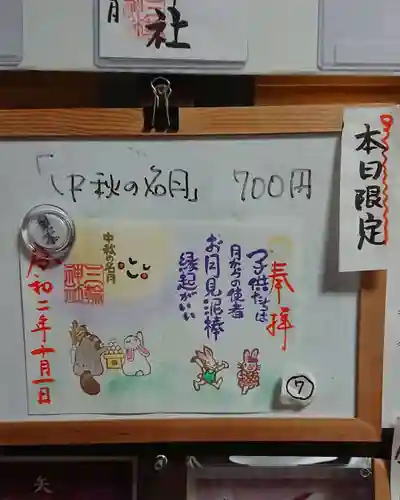 月
社
「中秋の名月」 700円
本日限定
奉拝
子供たちは
月からの使者
お月見泥棒
縁起がいい
中秋の名月
三輪
神社
令和二年十月一日
7
矢